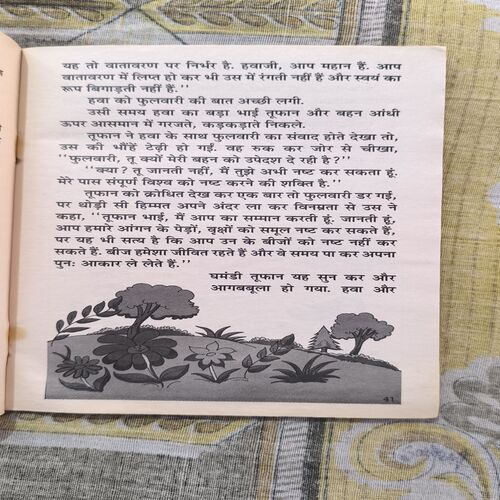 यह तो वातावरण पर निर्भर है. हवाजी, आप महान हैं. आप
वातावरण में लिप्त हो कर भी उस में रंगती नहीं हैं और स्वयं का
रूप बिगाड़ती नहीं हैं.''
हवा को फुलवारी की बात अच्छी लगी.
उसी समय हवा का बड़ा भाई तूफान और बहन आंधी
ऊपर आसमान में गरजते, कड़कड़ाते निकले.
तूफान ने हवा के साथ फुलवारी का संवाद होते देखा तो,
उस की भौंहें टेढ़ी हो गईं. वह रुक कर जोर से चीखा,
''फुलवारी, तू क्यों मेरी बहन को उपदेश दे रही है?''
''क्या? तू जानती नहीं, मैं तुझे अभी नष्ट कर सकता हूं.
मेरे पास संपूर्ण विश्व को नष्ट करने की शक्ति है.''
तूफान को क्रोधित देख कर एक बार तो फुलवारी डर गई,
पर थोड़ी सी हिम्मत अपने अंदर ला कर विनम्रता से उस ने
कहा, ''तूफान भाई, मैं आप का सम्मान करती हूं. जानती हूं,
आप हमारे आंगन के पेड़ों, वृक्षों को समूल नष्ट कर सकते हैं,
पर यह भी सत्य है कि आप उन के बीजों को नष्ट नहीं कर
सकते हैं. बीज हमेशा जीवित रहते हैं और वे समय पा कर अपना
पुनः आकार ले लेते हैं.''
घमंडी तूफान यह सुन कर और
आगबबूला हो गया. हवा और
41